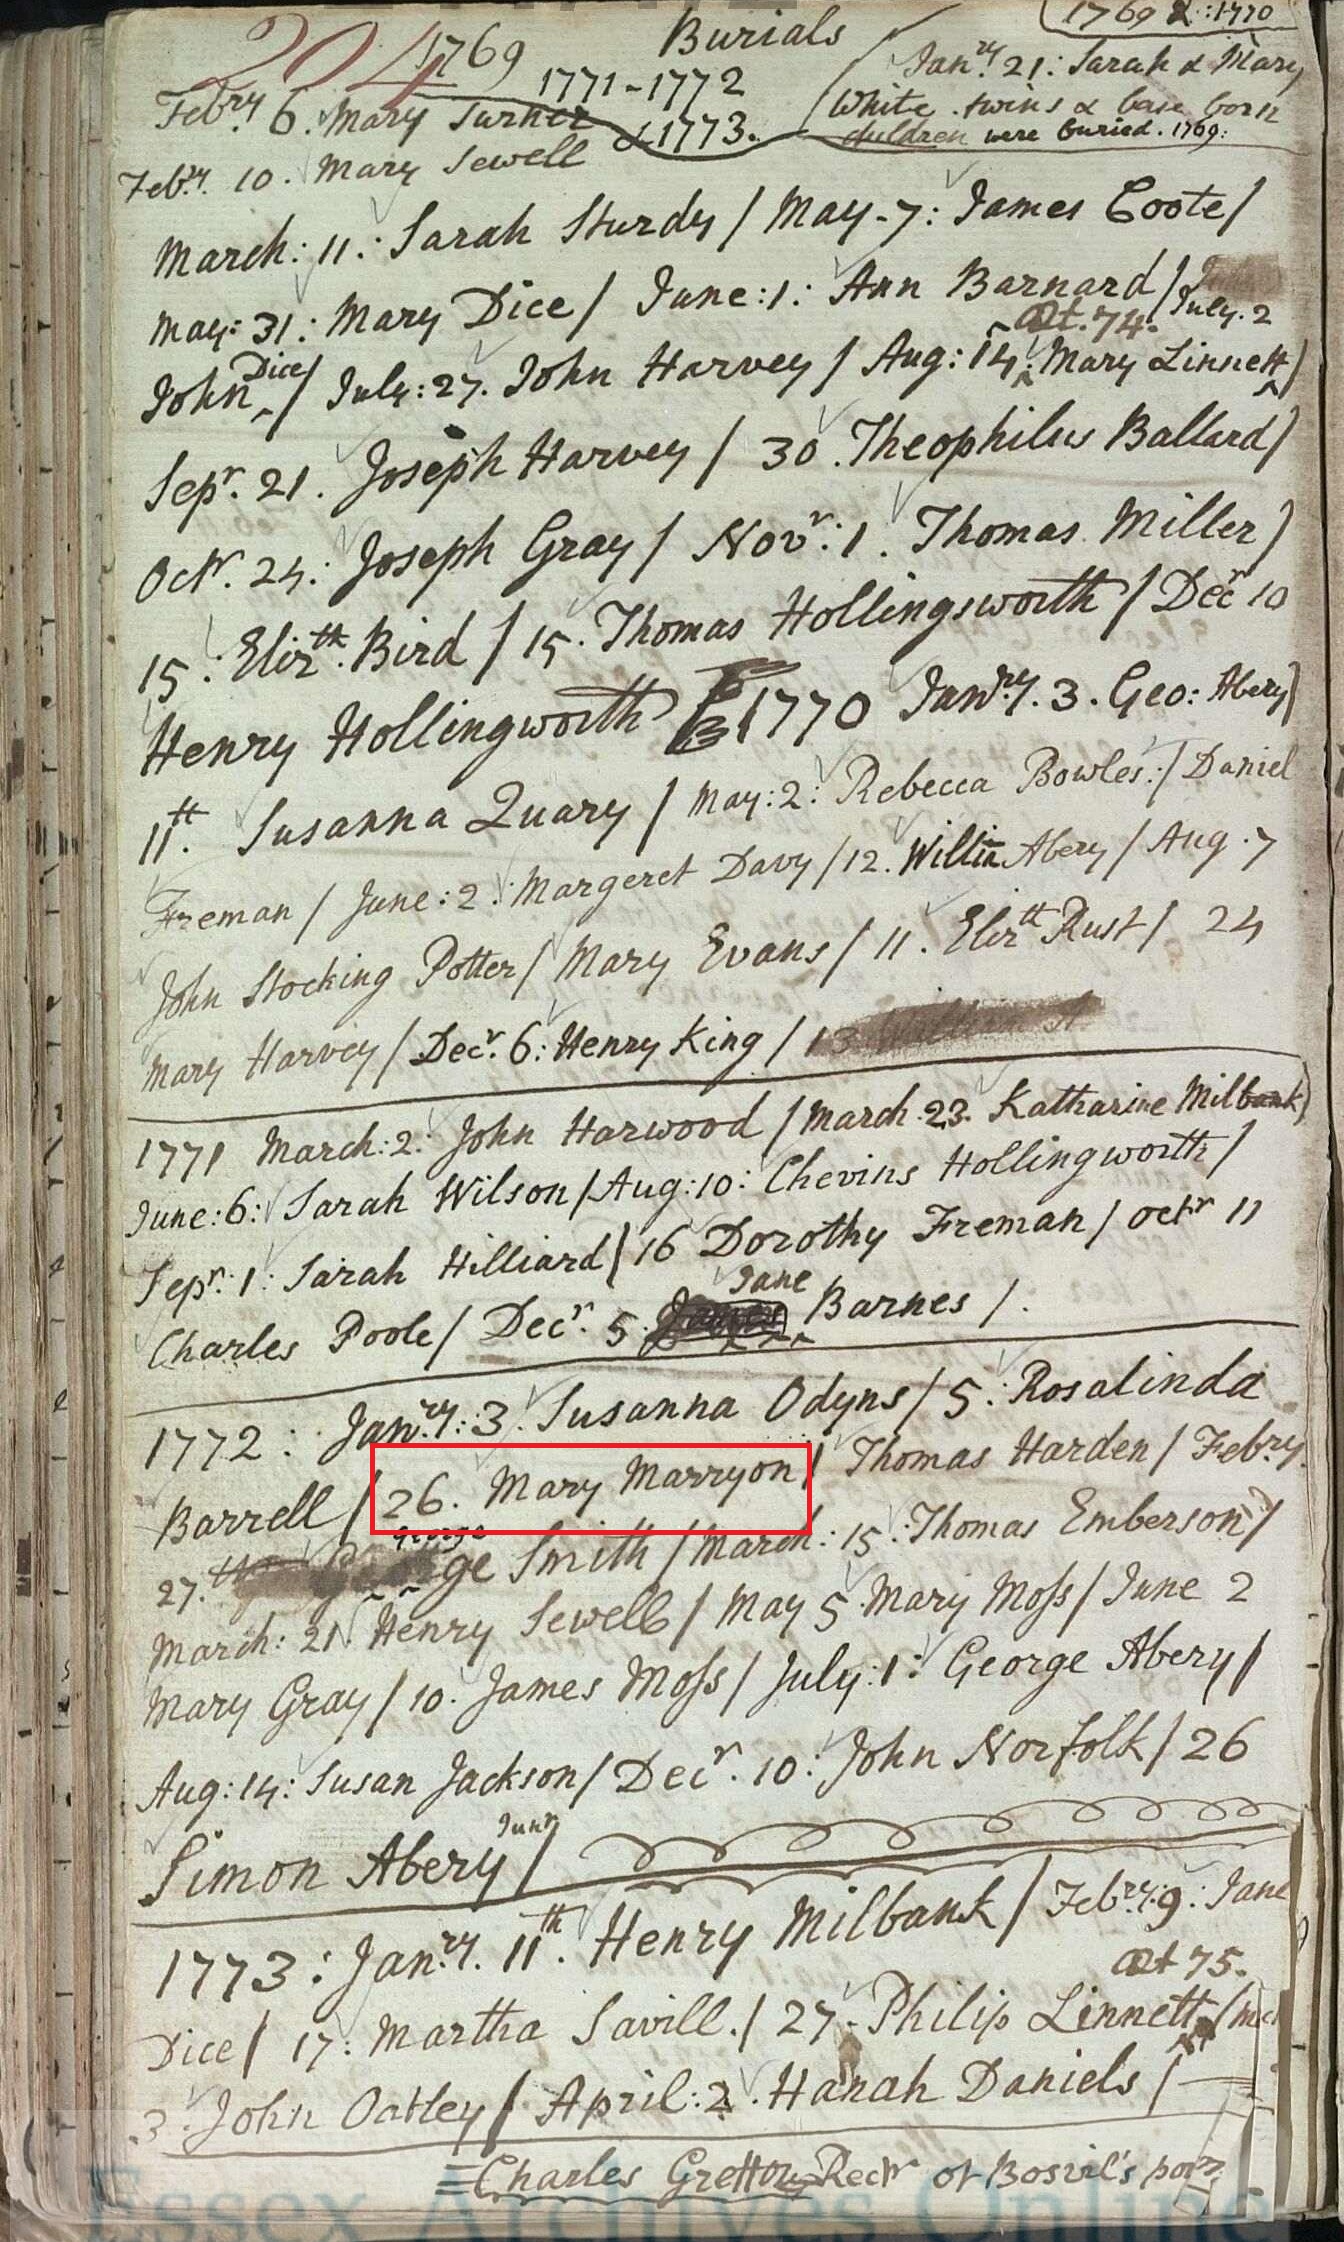 204 1769 Burials 1769 & : 1770
1771-1772
& 1773.
Janry. 21: Sarah & Mary
White twins & base born
children were buried. 1769:
Febry 6. Mary Turner
Febry. 10. Mary Sewell
March: 11: Sarah Sturdy / May-7: James Coote /
May: 31: Mary Dice / June: 1: Ann Barnard / July. 2
Æt. 74.
John Dice / July: 27. John Harvey / Aug: 14: Mary Linnett /
Sepr. 21. Joseph Harvey / 30. Theophilus Ballard /
Octr. 24: Joseph Gray / Novr: 1. Thomas Miller /
15: Elizth. Bird / 15. Thomas Hollingsworth / Decr 10
Henry Hollingworth 1770 Janry. 3. Geo: Abery /
11th. Susanna Quary / May: 2: Rebecca Bowles: / Daniel
Freman / June: 2: Margeret Davy / 12. Willia Abery / Aug. 7
John Stocking Potter / Mary Evans / 11. Elizth Rust / 24
Mary Harvey / Decr. 6: Henry King / 13 William A
1771 March: 2: John Harwood / March 23. Katharine Milbank /
June: 6: Sarah Wilson / Aug: 10: Chevins Hollingworth /
Sepr: 1: Sarah Hilliard / 16 Dorothy Freman / octr 11
Charles Poole / Decr. 5 James Jane Barnes /.
1772: Janry: 3. Susanna Odyns / 5. Rosalinda
Barrell / 26. Mary Marryon / Thomas Harden / Febry.
27. George Smith / March: 15: Thomas Emberson /
March: 21. Henry Sewell / May 5. Mary Moss / June 2
Mary Gray / 10. James Moss / July: 1: George Abery /
Aug: 14: Susan Jackson / Decr. 10: John Norfolk / 26
Simon Abery Junr /
1773: Janry. 11th. Henry Milbank / Febry: 9: Jane
Æt 75.
Dice / 17: Martha Savill. / 27- Philip Linnett /
3. John Oatley / April: 2. Hanah Daniels /
Charles Gretton Rectr of Bosvil's
Essex Archives Online